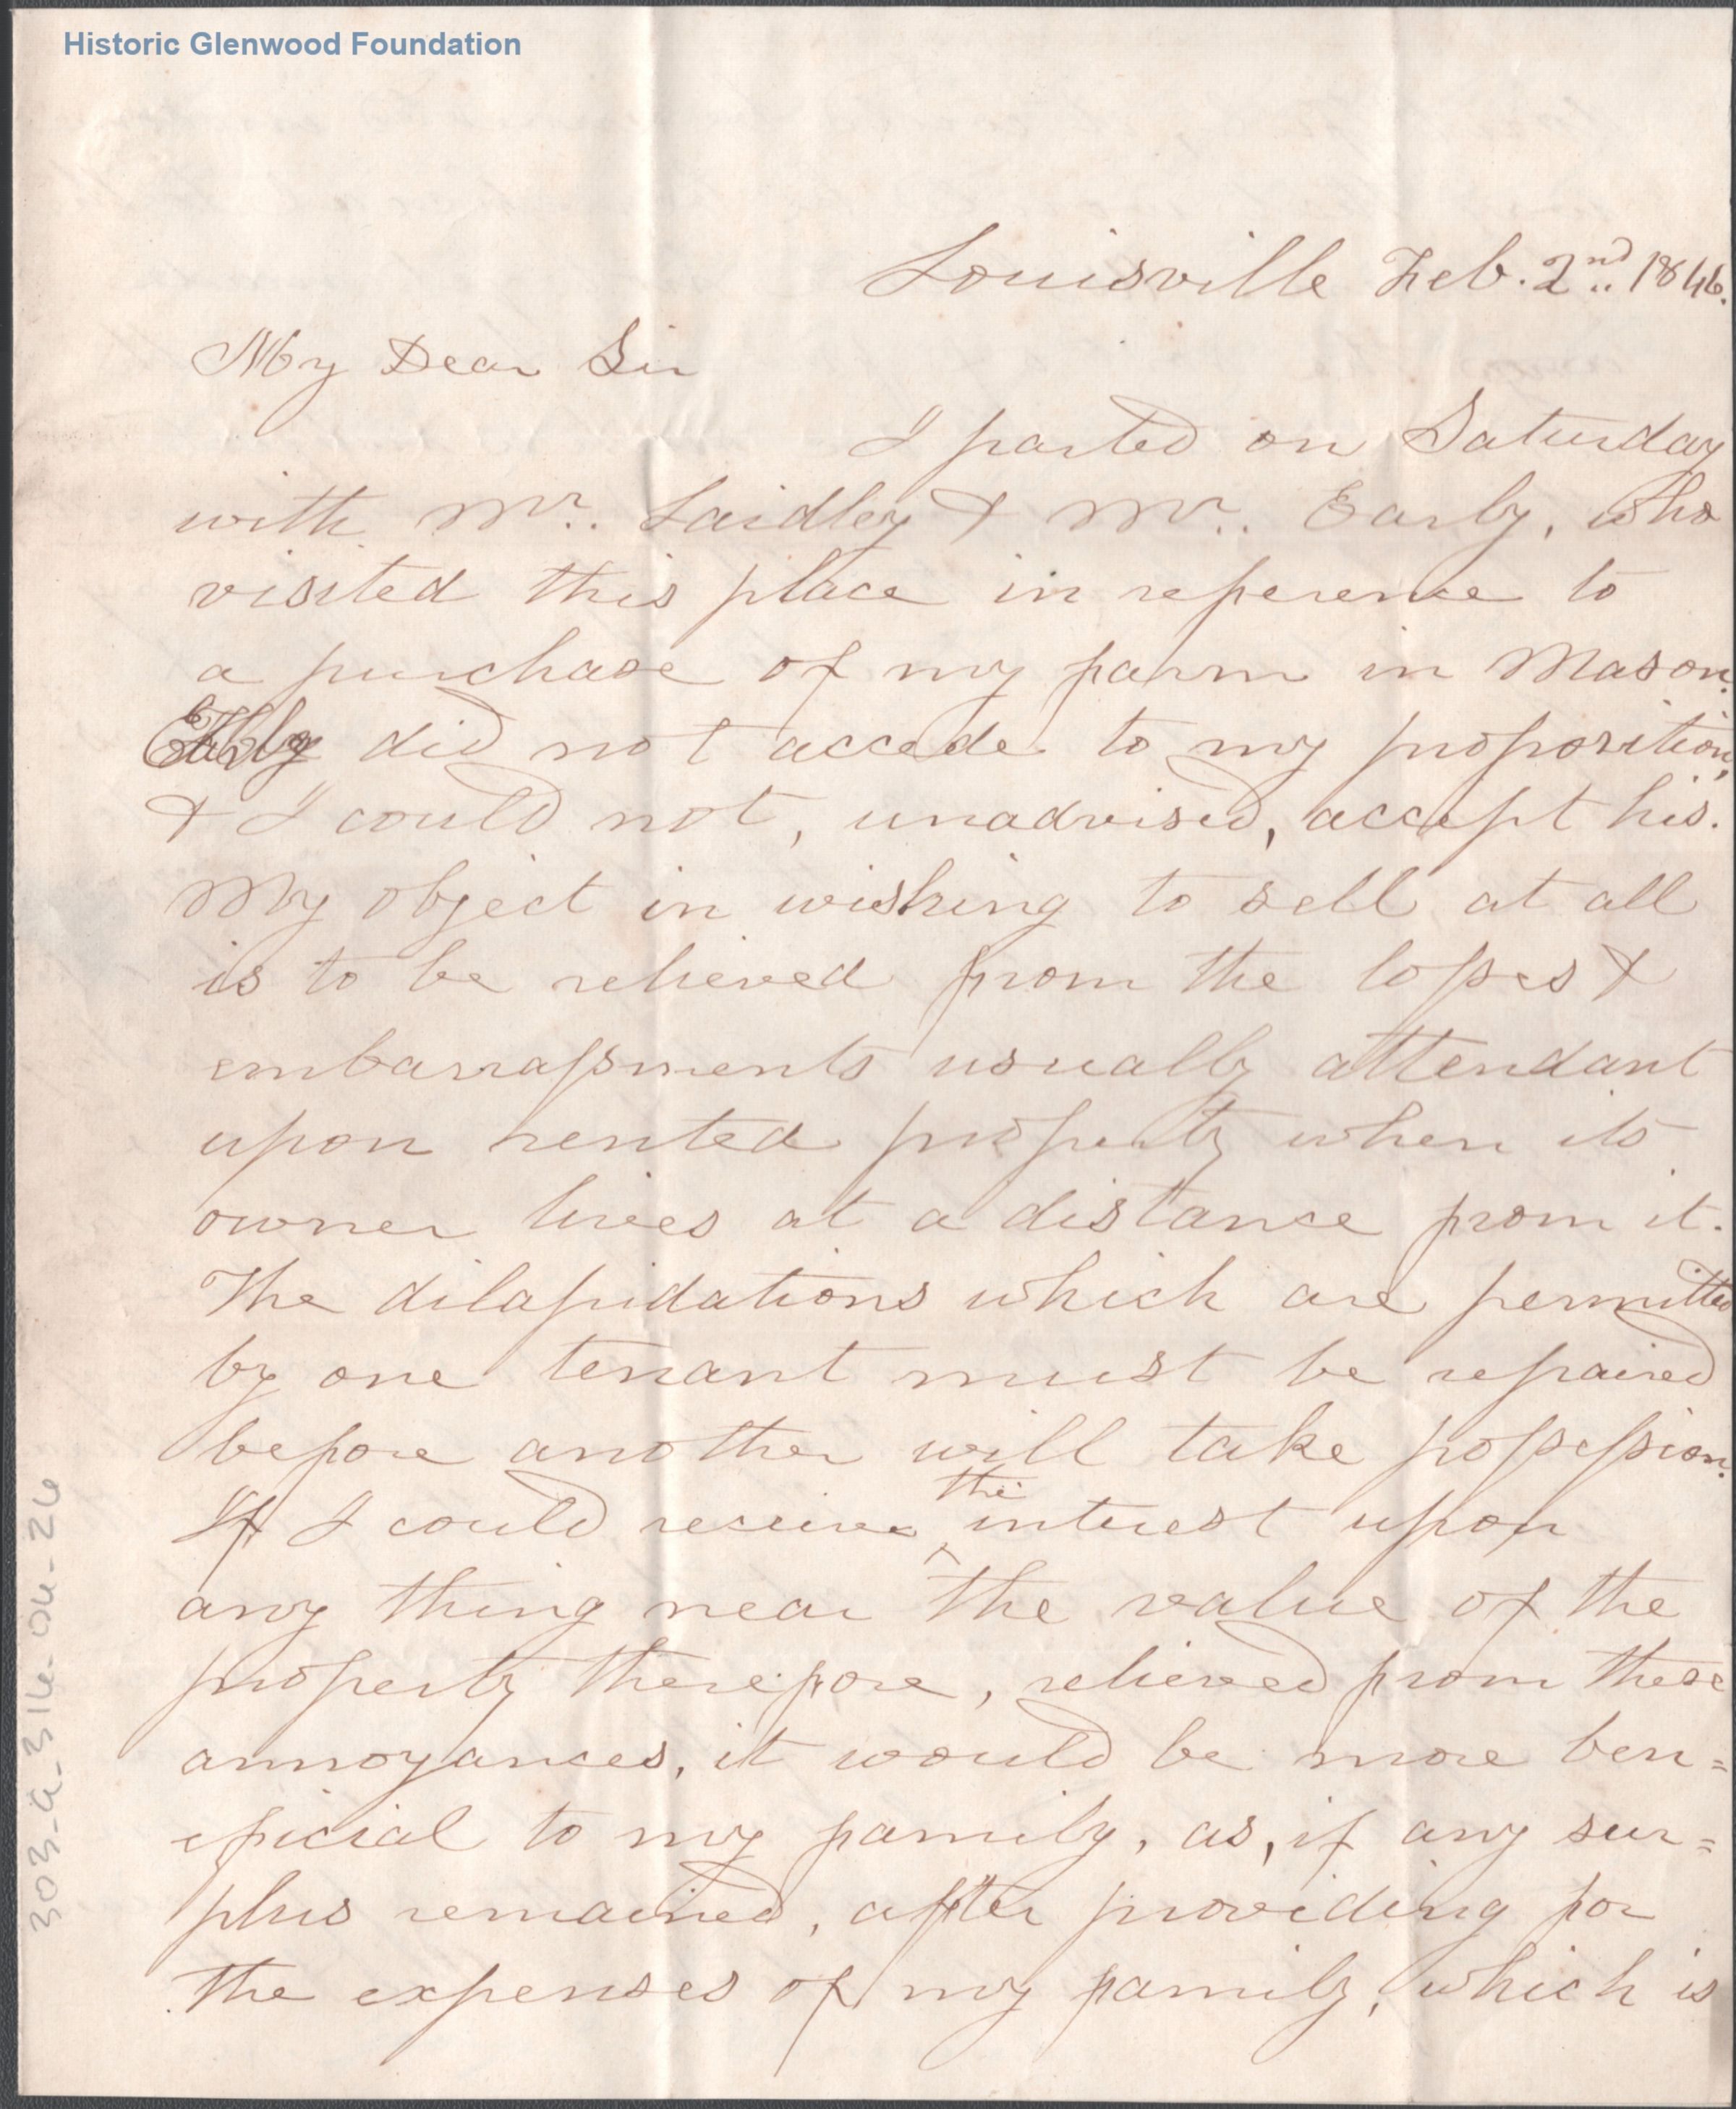 Historic Glenwood Foundation
Louisville Feb. 2nd 1846.
My Dear Sir
I parted on Saturday
with Mr. Laidley & Mr. Early, who
visited this place in reference to
a purchase of my farm in Mason.
did not accede to my proposition,
& I could not, unadvised, accept his.
My object in wishing to sell at all
is to be relieved from the losses &
embarrassments usually attendant
upon rented property when its
owner lives at a distance from it.
The dilapidations which are permitted
by one tenant must be repaired
before another will take possession.
If I could receive the interest upon
any thing near the value of the
property therefore, relieved from these
annoyances, it would be more ben=
eficial to my family, as, if any sur=
plus remained, after providing for
the expenses of my family, which is
303-a-314-04-26